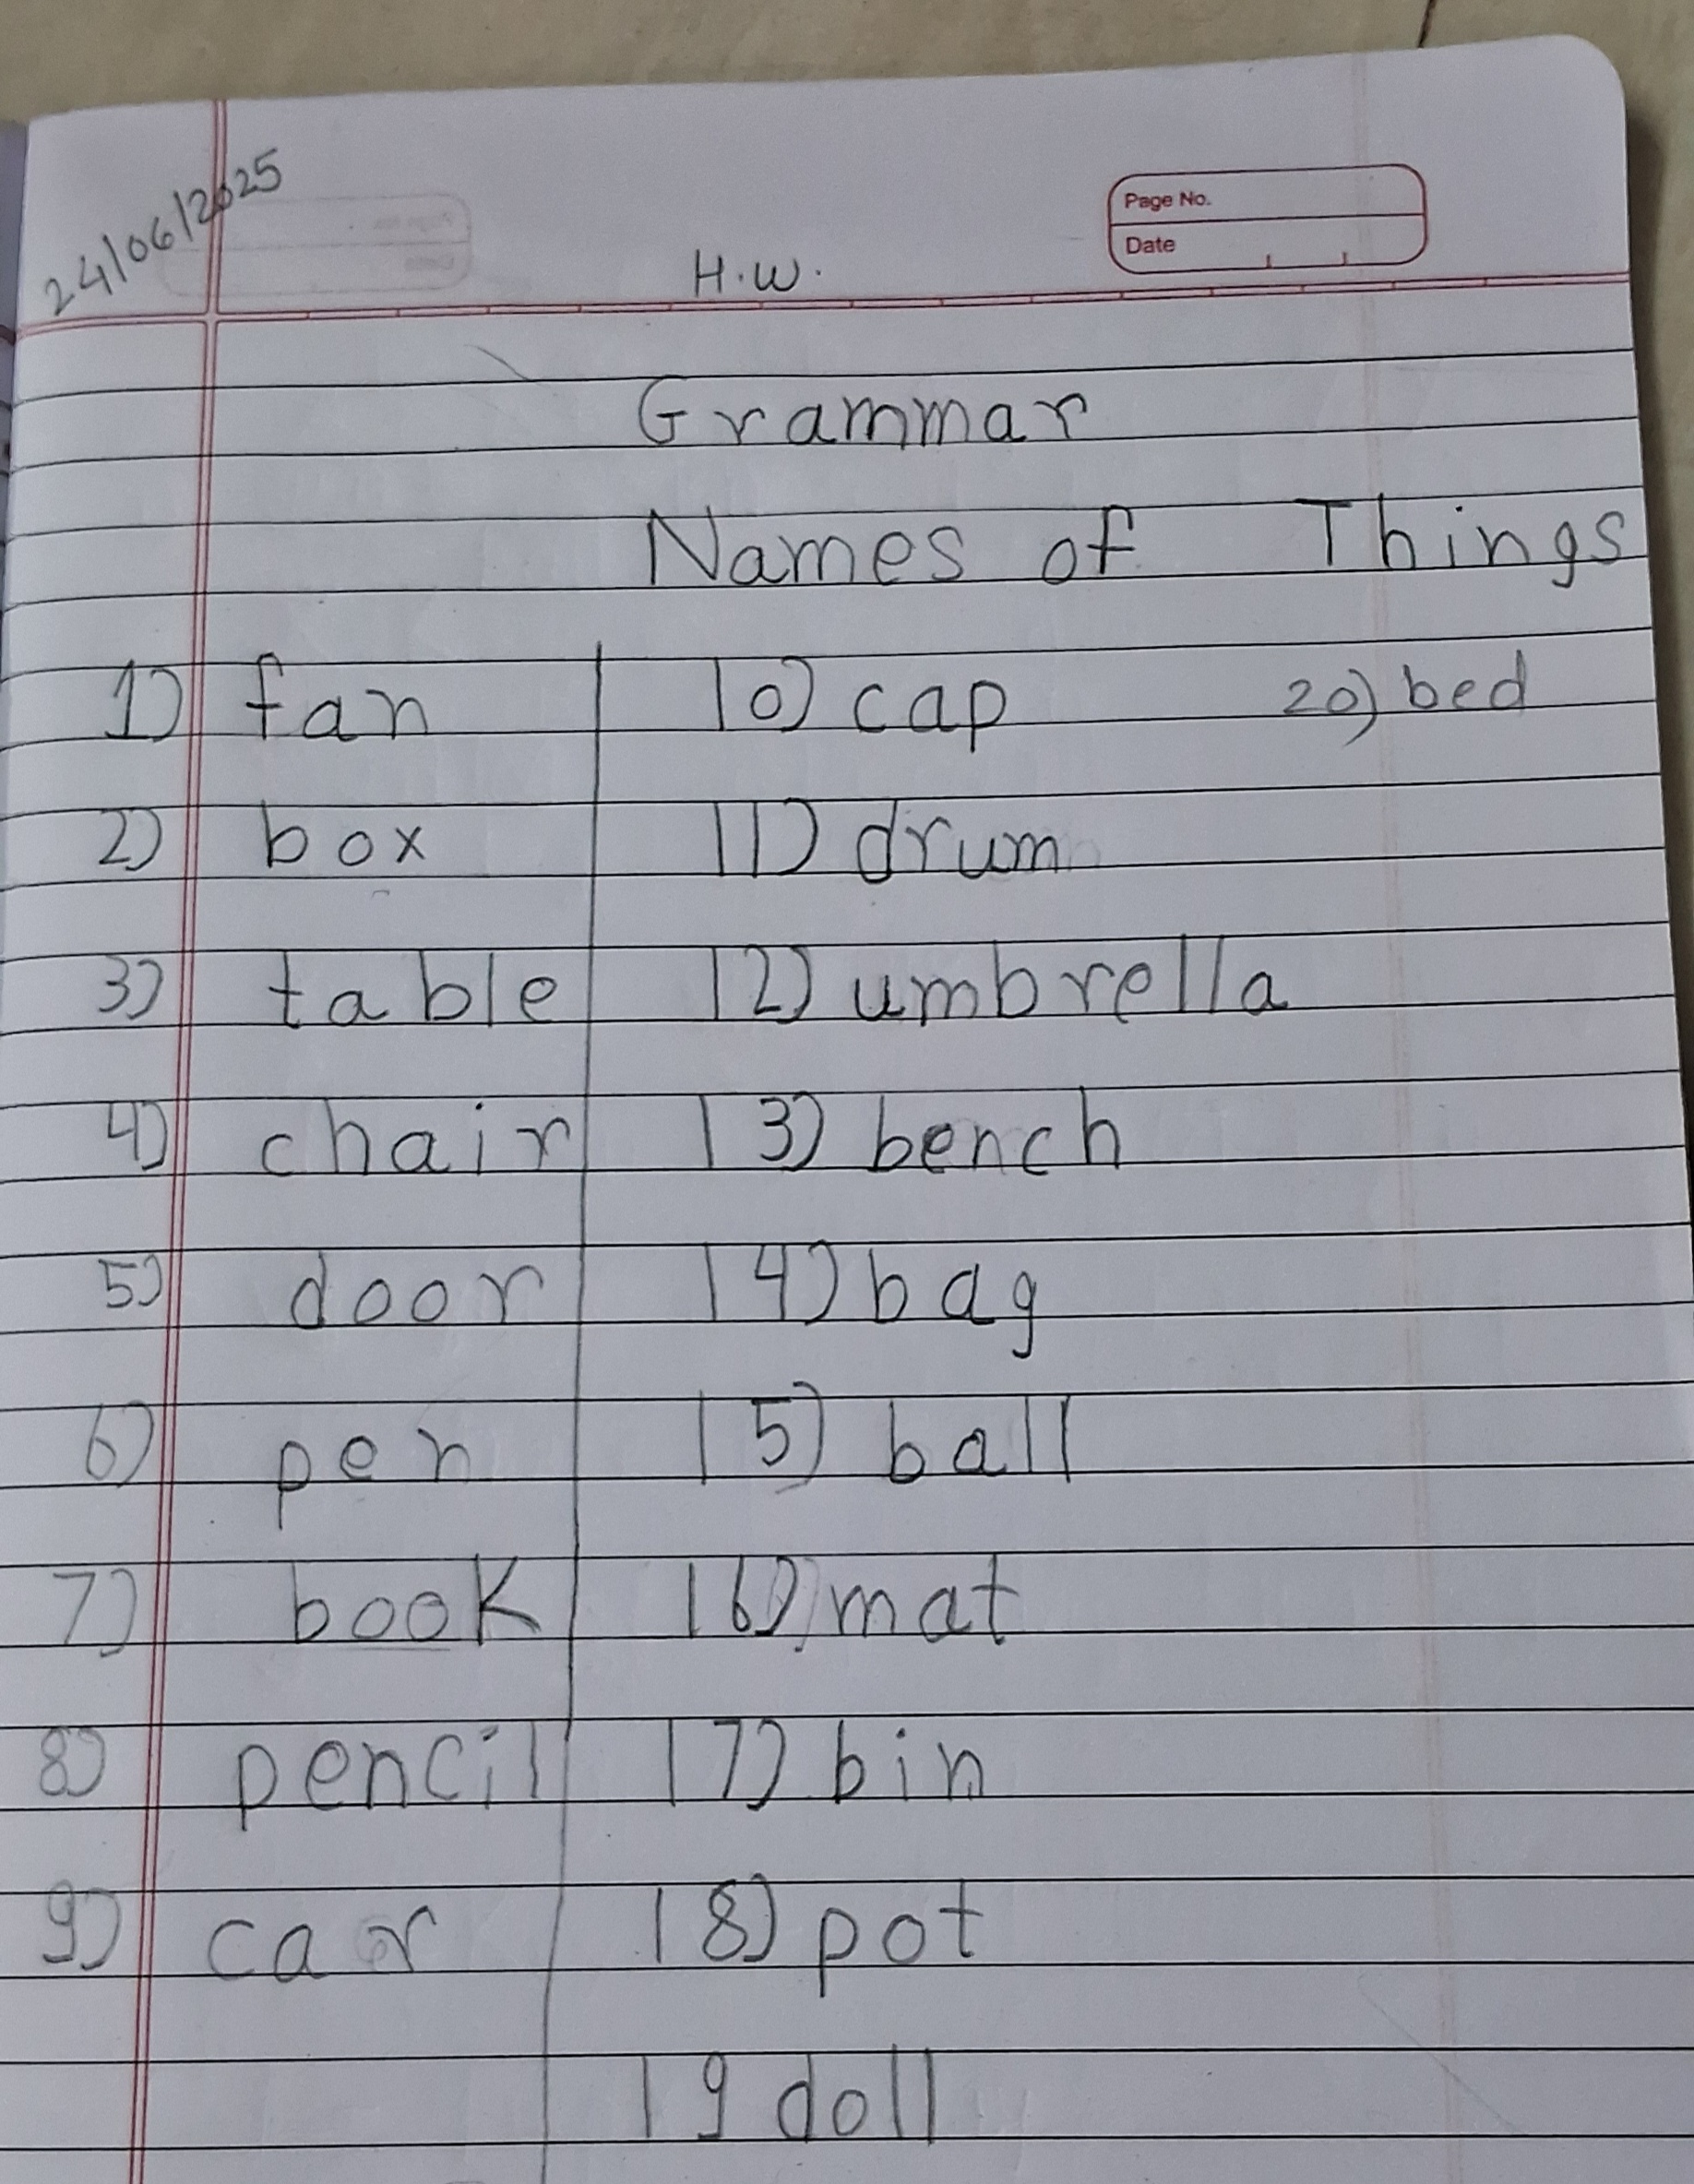 24/06/2025
Page No.
Date
H.W.
Grammar
Names of Things
1) fan
2) box
3) table
4) chair
5) door
6) pen
7) book
8) pencil
9) car
10) cap
11) drum
12) umbrella
13) bench
14) bag
15) ball
16) mat
17) bin
18) pot
19 doll
20) bed